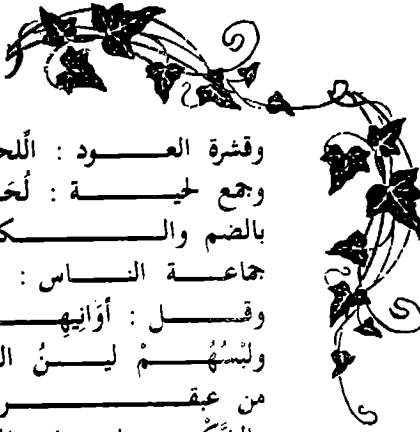 وقشرة العـــــود : اللحـ
وجمع لحيـــــة : لُحَـ
بالضم والـــــكـ
جماعـــة النـــاس :
وقـــــل : أَوَانِيهِـ
ولبْسُهُـــمْ ليـــنُ ال
من عبقـــــر